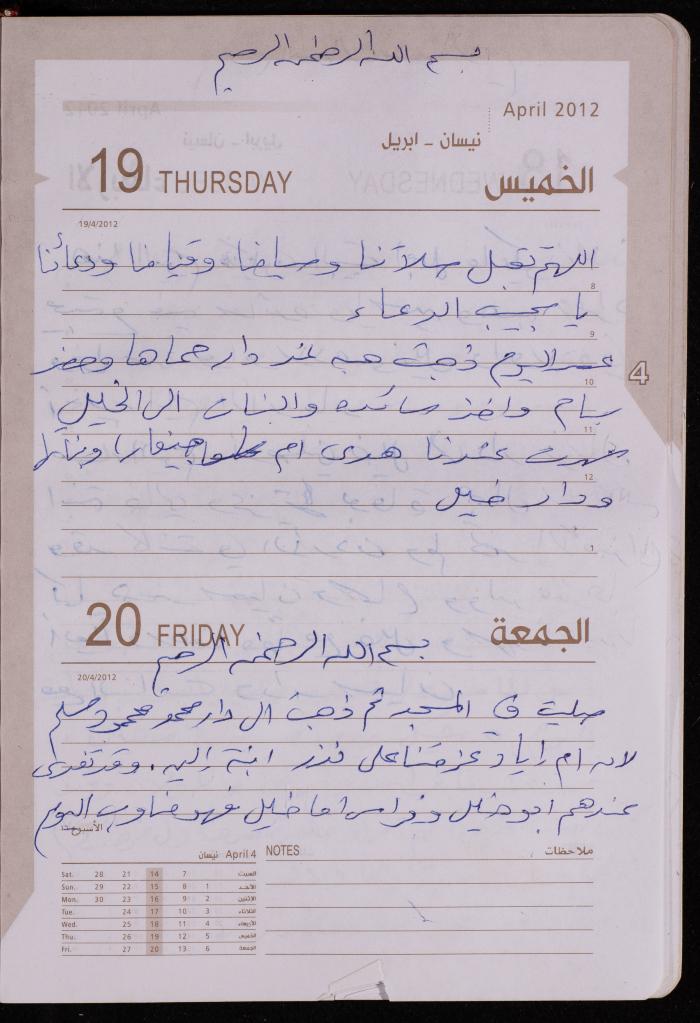 بسم الله الرحمن الرحيم
April 2012
نيسان - ابريل
19 THURSDAY الخميس
19/4/2012
اللهم تقبل صلاتنا وصيامنا وقيامنا ودعائنا
8
يا مجيب الدعاء
9
اليوم ذهبت هبه عند دار حماها وحضر
10
4
بسام واخذ سائده والبنات الى الخليل
11
عندنا هدى ام
12
ودار خليل
1
20 FRIDAY الجمعة
بسم الله الرحمن الرحيم
20/4/2012
صليت في المسجد ثم ذهبت الى دار محمود
لانه ام اياد عزمتنا على ابنة وقد تغدى
عندهم ابو خليل وفراس اما خليل فهو مناوب اليوم
الأسبوع
NOTES ملاحظات
نيسان April 4
Sat. 28 21 14 7 السبت
Sun. 29 22 15 8 1 الاحد
Mon. 30 23 16 9 2 الاثنين
Tue. 24 17 10 3 الثلاثاء
Wed. 25 18 11 4 الأربعاء
Thu. 26 19 12 5 الخميس
Fri. 27 20 13 6 الجمعة